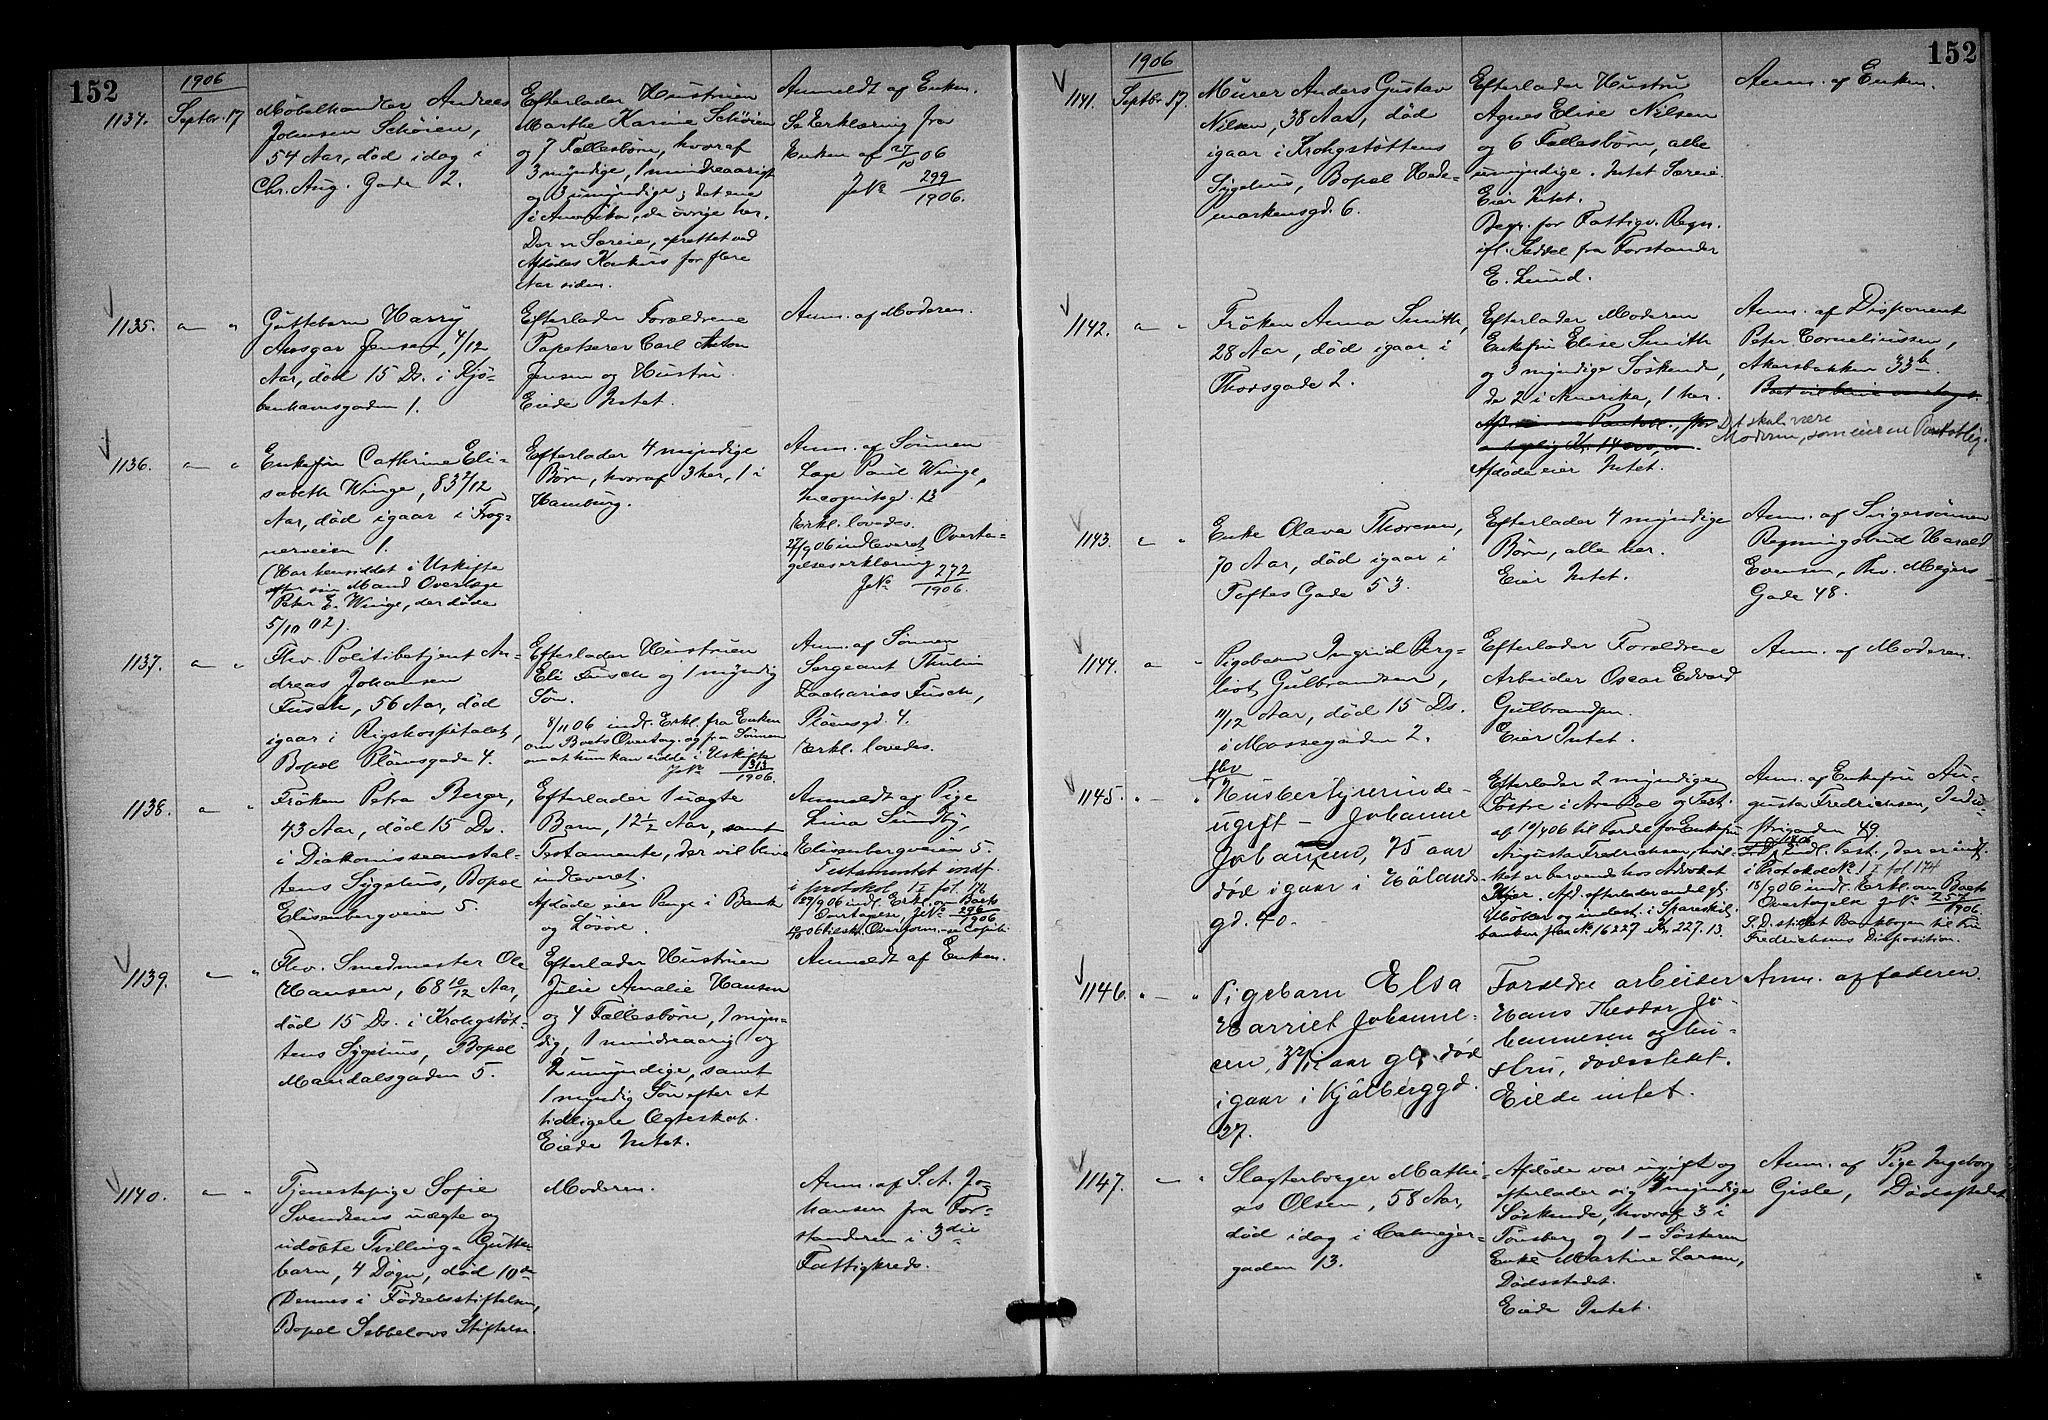 152
1906
1134.
Septbr. 17
Möbelhandler Andreas
Johnsen Schöien,
54 Aar, död idag i
Chr. Aug. Gade 2.
Efterlader Hustruen
Marthe Karine Schöien
og 7 Fællesbörn, hvoraf
3 myndige, 1 mindreaarigt
og 3 umyndige; det ene
i Amerika, de övrige her.
Der er Særeie, oprettet ved
Afdödes Konkurs for flere
Aar siden.
Anmeldt af Enken.
Se Erklæring fra
Enken af 27/10 06
JNo 299/1906.
1135.
Guttebarn Harry
Ansgar Jensen, 4/12
Aar, död 15 Ds. i Kjö-
benhavnsgaden 1.
Efterlader Forældrene
Papetserer Carl Anton
Jensen og Hustru.
Eiede Intet.
Anm. af Moderen.
1136.
Enkefru Cathrine Eli-
sabeth Winge, 83 4/12
Aar, död igaar i Frog-
nerveien 1.
(Har hensiddet i Uskifte
efter sin Mand Overlæge
Peter E. Winge, der döde
5/10 02).
Efterlader 4 myndige
Börn, hvoraf 3 her, 1 i
Hamburg.
Anm. af Sönnen
Læge Paul Winge,
Incognitogd. 13
Erkl. lovedes.
27/9 06 indleveret Overta-
gelseserklæring
JNo 272/1906.
1137.
Fhv. Politibetjent An-
dreas Johansen
Fusch, 56 Aar, död
igaar i Rigshospitalet,
Bopæl Plöensgade 4.
Efterlader Hustruen
Eli Fusch og 1 myndig
Sön.
8/11 06 indl. Erkl. fra Enken
om Boets Overtag. og fra Sönnen
om at hun kan sidde i Uskifte
JNo 313/1906.
Anm. af Sönnen
Sergeant Thulin
Zacharias Fusch,
Plöensgd. 4.
Erkl. lovedes.
1138.
Fröken Petra Berger,
43 Aar, död 15 Ds.
i Diakonisseanstal-
tens Sygehus, Bopæl
Elisenbergveien 5.
Efterlader 1 uægte
Barn, 12 1/2 Aar, samt
Testamente, der vil blive
indleveret.
Afdöde eier Penge i Bank
og Lösöre.
Anmeldt af Pige
Lina Sundby,
Elisenbergveien 5.
Testamentet indf.
i protokol I fol. 176
29/9 06 indl. Erkl. om Boets
Overtagelse, JNo 296/1906
1139.
Fhv. Smedmester Ole
Hansen, 68 10/12 Aar,
död 15 Ds. i Krohgstöt-
tens Sygehus, Bopæl
Mandalsgaden 5.
Efterlader Hustruen
Julie Amalie Hansen
og 4 Fællesbörn, 1 myn-
dig, 1 mindreaarig og
2 umyndige, samt
1 myndig Sön efter et
tidligere Ægteskab.
Eiede Intet.
Anmeldt af Enken.
1140.
Tjenestepige Sofie
Svendsens uægte og
udöbte Tvilling-Gutte-
barn, 4 Dögn, död 10de
Dennes i Födselsstiftelsen,
Bopæl Sebbelows Stiftelse.
Moderen.
Anm. af S. A. Jo-
hansen fra For-
standeren i 3die
Fattigkreds.
152
1906
1141.
Septbr. 17.
Murer Anders Gustav
Nilsen, 38 Aar, död
igaar i Krohgstöttens
Sygehus, Bopæl Hede-
markensgd. 6.
Efterlader Hustru
Agnes Elise Nilsen
og 6 Fællesbörn, alle
umyndige. Intet Særeie.
Eier Intet.
Begr. for Fattigv. Regn.
ifl. Seddel fra Forstander
E. Lund.
Anm. af Enken.
1142.
Fröken Anna Smith,
28 Aar, död igaar i
Thorsgade 2.
Efterlader Moderen
Enkefru Elise Smith
og 3 myndige Söskende,
de 2 i Amerika, 1 her.
Afdöde eier Intet.
Anm. af Disponent
Peter Corneliussen,
Akersbakken 33b.
Det skal være
Moderen, som eier en Pantoblig.
1143.
Enke Olava Thoresen,
70 Aar, död igaar i
Toftes Gade 53.
Efterlader 4 myndige
Börn, alle her.
Eier Intet.
Anm. af Svigersönnen
Regningsbud Harald
Evensen, Thv. Meyers
Gade 48.
1144.
Pigebarn Ingrid Berg-
liot Gulbrandsen,
11/12 Aar, död 15 Ds.
i Mossegaden 2.
Efterlader Forældrene
Arbeider Oscar Edvard
Gulbrandsen.
Eier Intet.
Anm. af Moderen.
1145.
fhv
Husbestyrerinde-
ugift - Johanne
Johansen, 75 aar
död igaar i Hölands-
gd. 40.
Efterlader 2 myndige
Söstre i Arendal og Test.
af 19/4 06 til Fordel for Enkefru
Augusta Fredrichsen, hvil-
ket er beroende hos Advokat
Kjær. Afd. efterlader endel
Möbler og indest. i Spareskil.
banken paa No. 16227 Kr. 227.13.
Anm. af Enkefru Au-
gusta Fredrichsen, Indu-
strigaden 49.
S. D. indl. Test., der er indf.
i Protokol No. I fol 174
18/9 06 indl. Erkl. om Boets
Overtagelse JNo 257/1906.
S. D. Bankbogen til Fru
Fredrichsens Disposition.
1146.
Pigebarn Elsa
Harriet Johanne-
sen, 3 2/12 aar gl, död
igaar i Kjölberggd.
27.
Forældre arbeider
Hans Theodor Jo-
hannesen og hu-
stru, dödsstedet.
Eiede intet.
Anm. af faderen.
1147.
Slagterborger Mathi-
as Olsen, 58 Aar,
död idag i Calmeyer-
gaden 13.
Afdöde var ugift og
efterlader sig 4 myndige
Söskende, hvoraf 3 i
Tönsberg og 1 - Sösteren
Enke Martine Larsen,
Dödsstedet.
Eiede Intet.
Anm. af Pige Ingeborg
Gisle, Dödsstedet